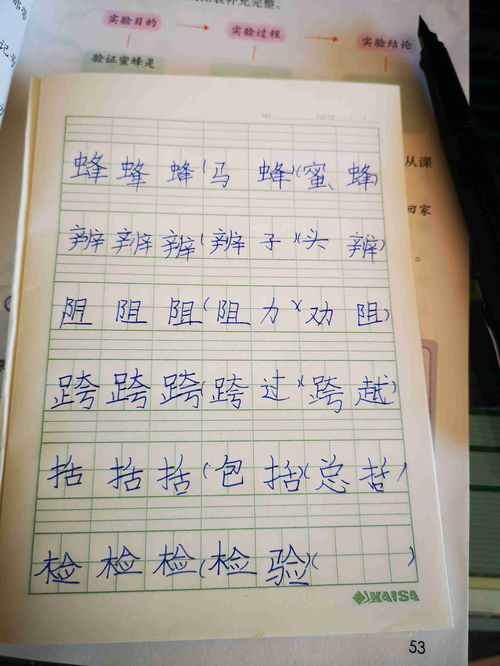 补充完整。
实验目的 → 实验过程 → 实验结论
验证蜜蜂是
记
从课
回家
。
NO. DATE
蜂 蜂 蜂(马 蜂)(蜜 蜂)
辨 辨 辨(辨 子)(头 辨)
阻 阻 阻(阻 力)(劝 阻)
跨 跨 跨(跨 过)(跨 越)
括 括 括(包 括)(总 括)
检 检 检(检 验)( )
KAISA
53